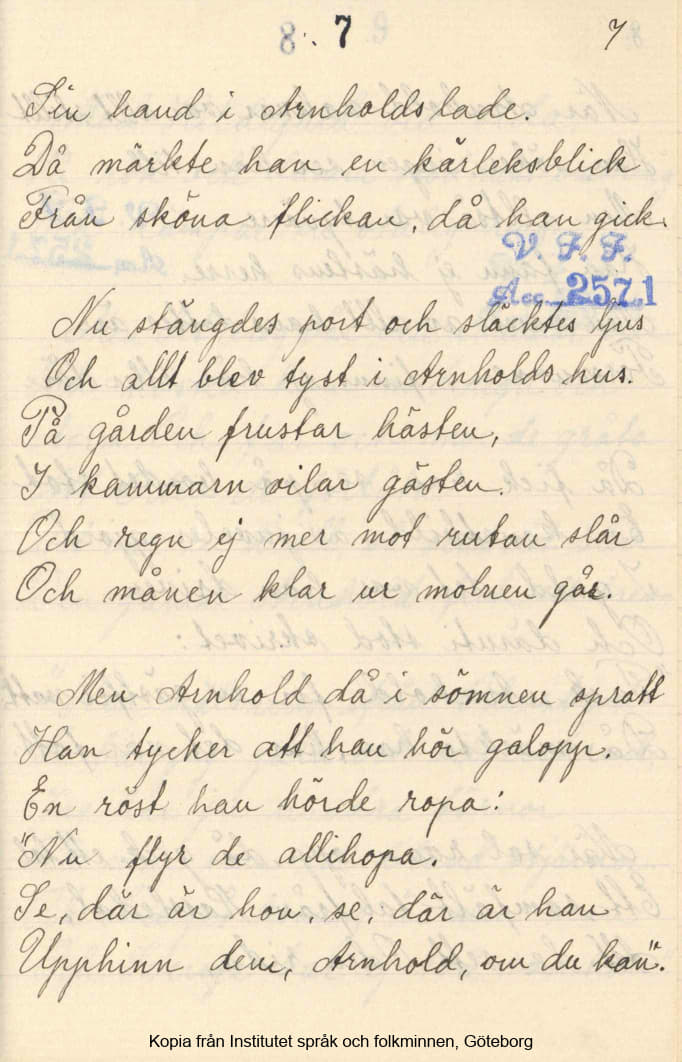 8. 7 7
Sin hand i Arnholds lade.
Då märkte han en kärleksblick
Från sköna flickan, då han gick.
V. F. F.
Acc. 2571
Nu stängdes port och släcktes ljus
Och allt blev tyst i Arnholds hus.
På gården frustar hästen,
I kammarn vilar gästen.
Och regn ej mer mot rutan slår
Och månen klar ur molnen går.
Men Arnhold då i sömnen spratt
Han tycker att han hör galopp.
En röst han hörde ropa:
"Nu flyr de allihopa.
Se, där är hon, se, där är han
Upphinn dem, Arnhold, om du kan".
Kopia från Institutet språk och folkminnen, Göteborg